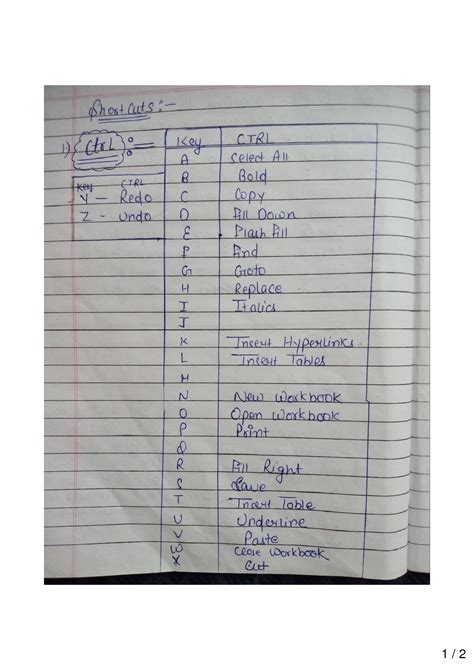 Shortcuts :-
1) Ctrl :=
Key CTRL
Y - Redo
Z - Undo
Key CTRL
A Select All
B Bold
C Copy
D Fill Down
E Flash Fill
F Find
G Goto
H Replace
I Italics
J
K Insert Hyperlinks
L Insert Tables
M
N New Workbook
O Open Workbook
P Print
Q
R Fill Right
S Save
T Insert Table
U Underline
V Paste
W Close Workbook
X Cut
1 / 2